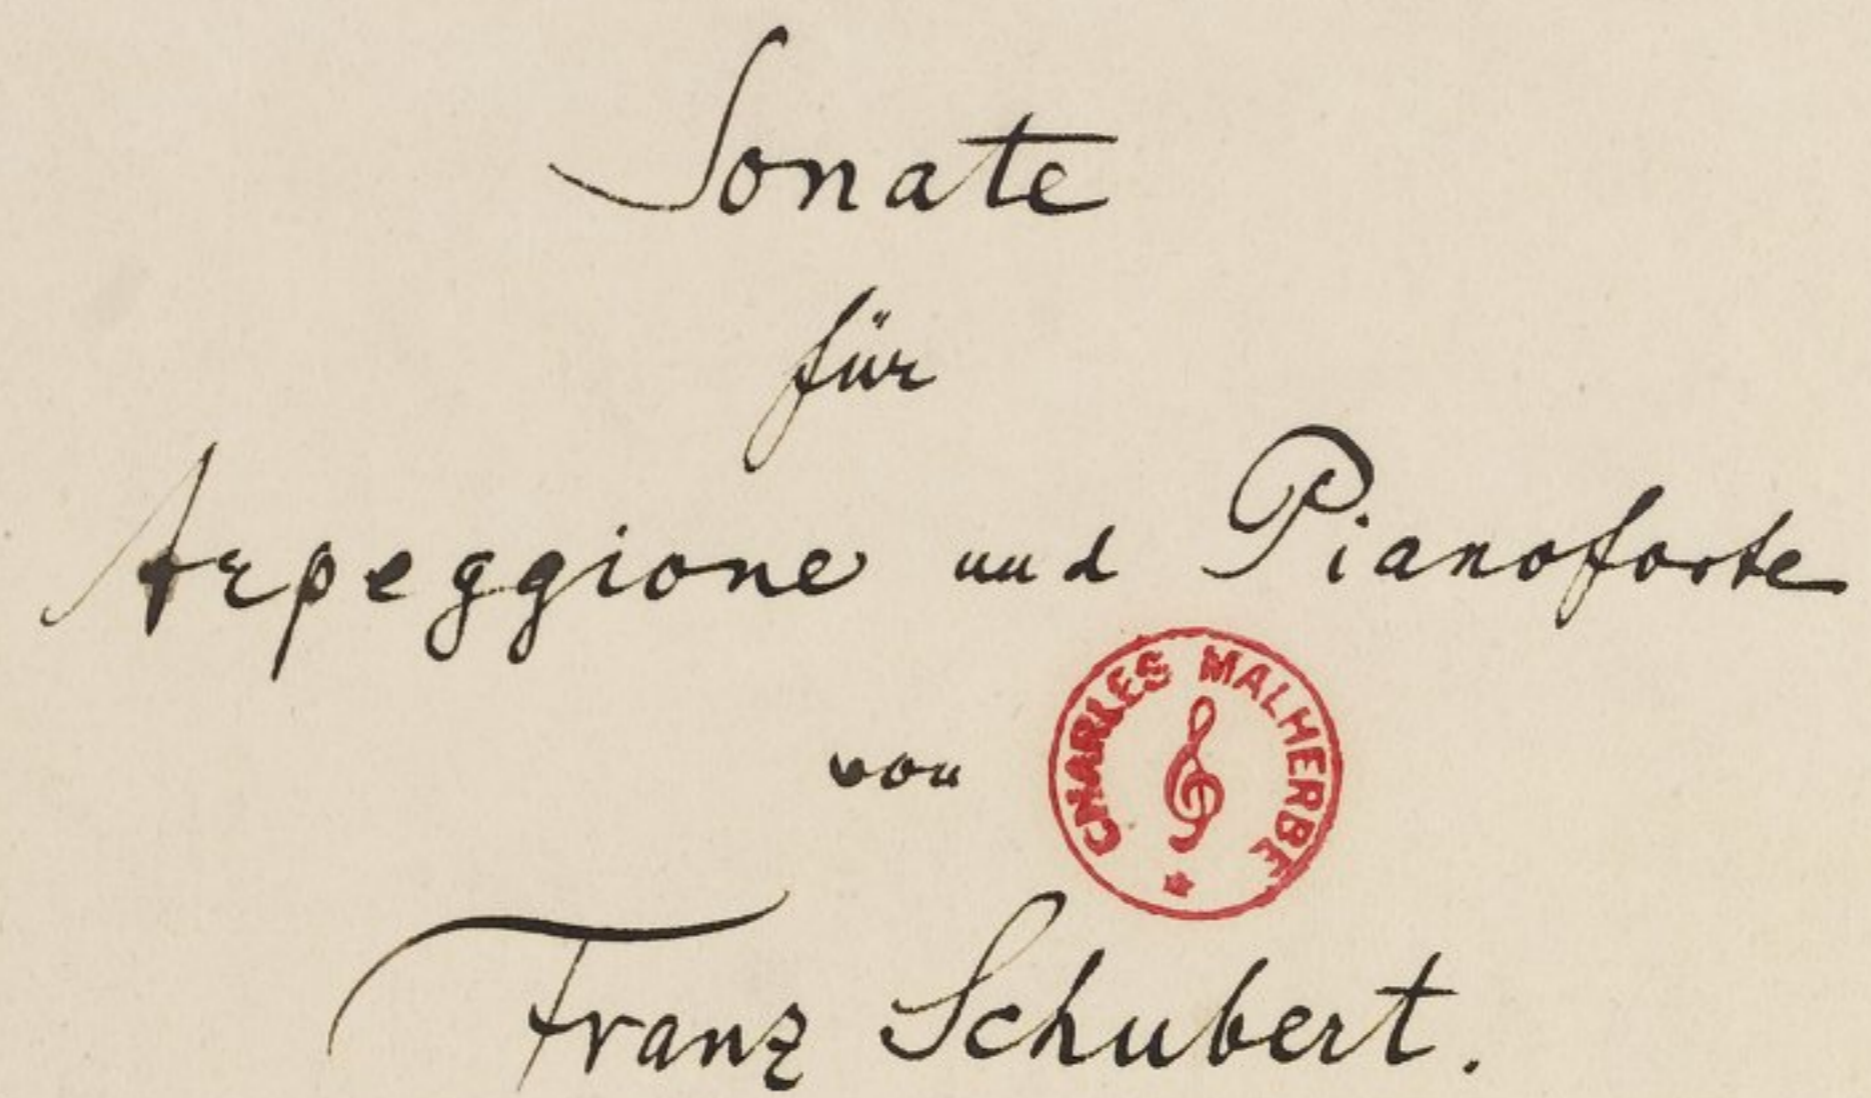 Sonate
für
Arpeggione und Pianoforte
von
CHARLES MALHERBE
Franz Schubert.